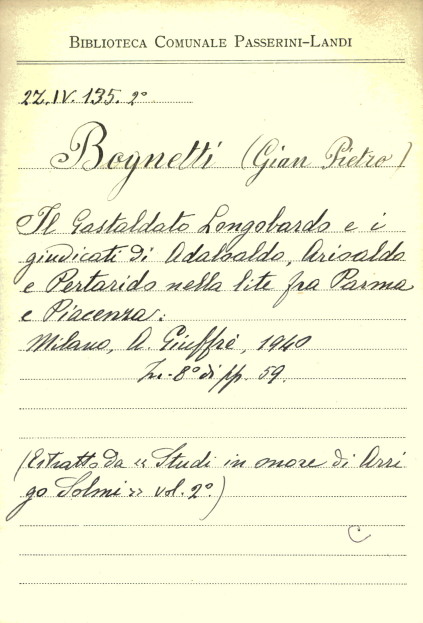 BIBLIOTECA COMUNALE PASSERINI-LANDI
2Z.IV.135.2º
Bognetti (Gian Pietro)
Il Gastaldato Longobardo e i
giudicati di Adaloaldo, Arioaldo
e Pertarido nella lite fra Parma
e Piacenza:
Milano, A. Giuffrè, 1940
In-8º di pp. 59.
(Estratto da « Studi in onore di Arri
go Solmi » vol. 2º.)
C